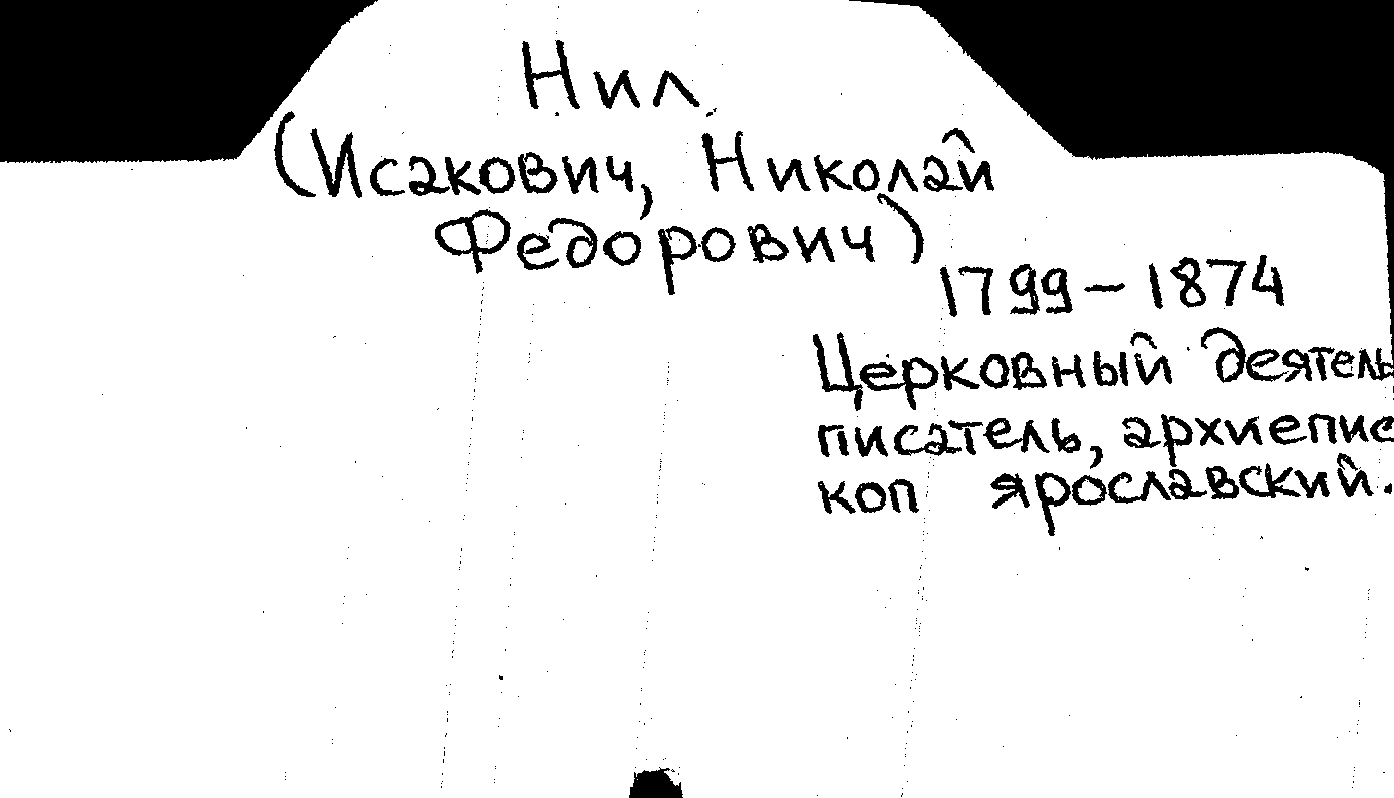 Нил
(Исакович, Николай
Федорович)
1799-1874
Церковный деятель
писатель, архиепис
коп ярославский.